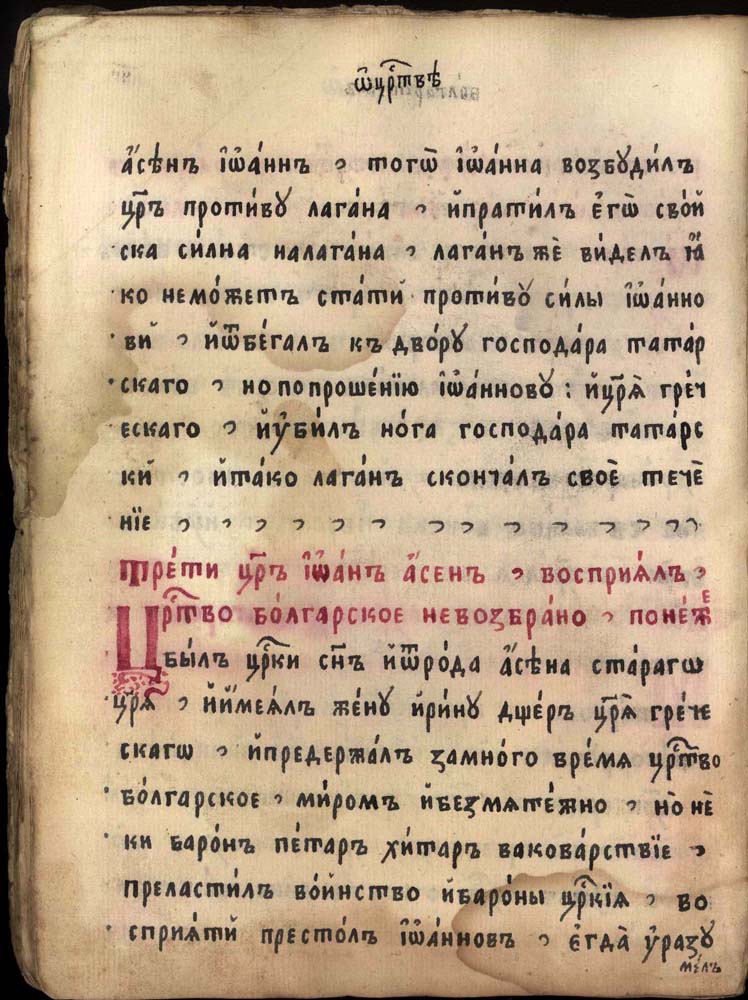 ѿцр҇твѣ
а҆сѣнъ і҆ѡа́ннъ , тогѡ і҆ѡа́нна возбуди́лъ
цр҃ъ проти́ву лага́на , и҆прати́лъ є҆гѡ̀ сво́й
ска си́лна налага́на , лага́нъ жѐ ви́делъ ꙗ҆́
ко немо́жетъ ста́тй проти́ву си́лы і҆ѡа́нно
вй , и҆ѿбе́галъ къ дво́ру господа́ра тата́р
скаго , но по проше́нїю і҆ѡа́ннову : и҆цр҃ѧ̀ гре́ч
ескаго , и҆ᲂу҆би́лъ но́га господа́ра тата́рс
кй , и҆та́ко лага́нъ сконча́лъ своѐ течѐ
нїе , , , , , , , , , , , ,
тре́ти цр҃ъ і҆ѡа́нъ а҆́сенъ , воспрїѧ́лъ ,
Цр҇тво бо́лгарское невозбра́но , поне́же
бы́лъ цр҇ки сн҃ъ и҆ѿро́да а҆сѣ́на ста́рагѡ
цр҃ѧ̀ , и҆и҆ме́ѧлъ жену̀ и҆ри́ну дще́ръ цр҃ѧ̀ гре́че
скагѡ , и҆предержа́лъ замно́го вре́мѧ цр҇тво
бо́лгарское , ми́ромъ и҆безмѧте́жно , но̀ нѐ
ки баро́нъ пе́таръ хи́таръ ваковарствїе ,
преласти́лъ во́инство и҆баро́ны цр҇кїѧ , во
сприѧ́тй престо́лъ і҆ѡа́нновъ , є҆гда̀ у҆разу
ме́лъ